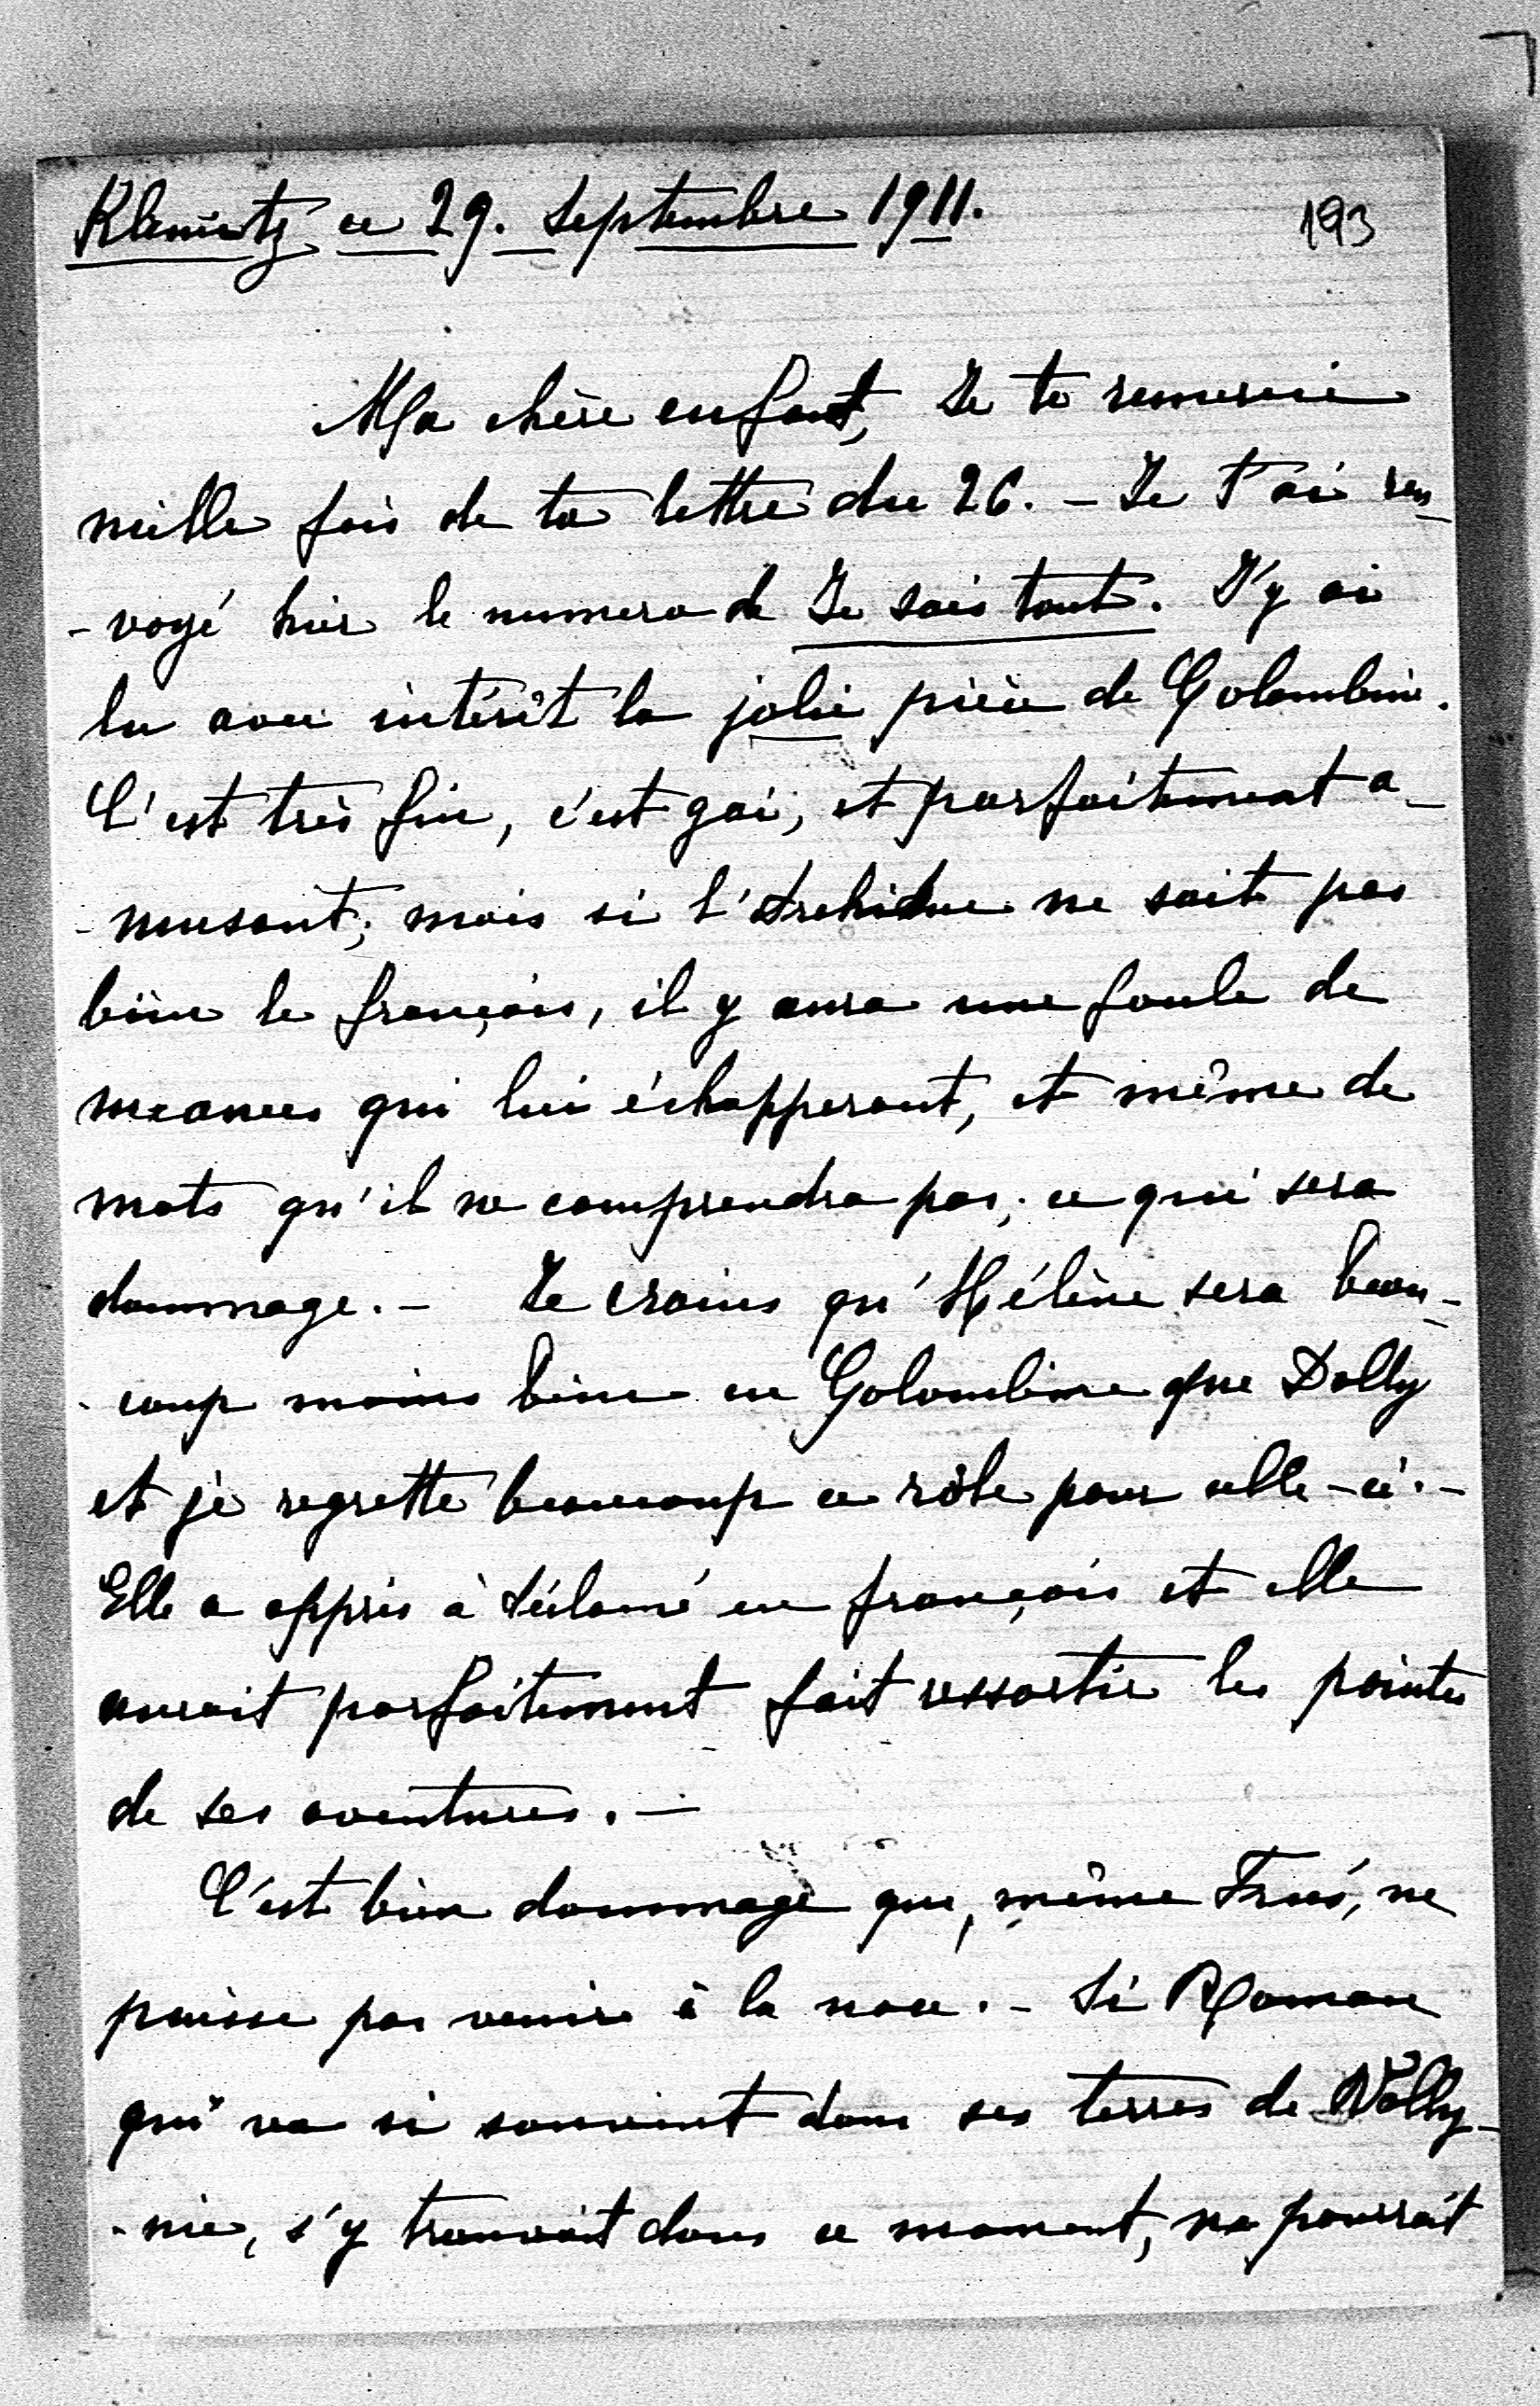 Klemutz ce 29. Septembre 1911.
193
Ma chère enfant, Je te remercie
mille fois de ta lettre du 26. – Je t'ai ren-
-voyé hier le numero de Je sais tout. J'y ai
lu avec intérêt la jolie pièce de Colombine.
C'est très fin, c'est gai, et parfaitement a-
-musant; mais si l'Archiduc ne sait pas
bien le français, il y aura une foule de
nuances qui lui échapperont, et même de
mots qu'il ne comprendra pas; ce qui sera
dommage. – Je crains qu'Hélène sera beau-
-coup moins bien en Colombine que Dolly
et je regrette beaucoup ce rôle pour celle-ci. –
Elle a appris à déclamé en français et elle
aurait parfaitement fait ressortir les pointes
de ses aventures. –
C'est bien dommage que, même Fréé, ne
puisse pas venir à la noce. – Si Roman
qui va si souvent dans ses terres de Volhy-
-nie, s'y trouvait dans ce moment, ne pourrait